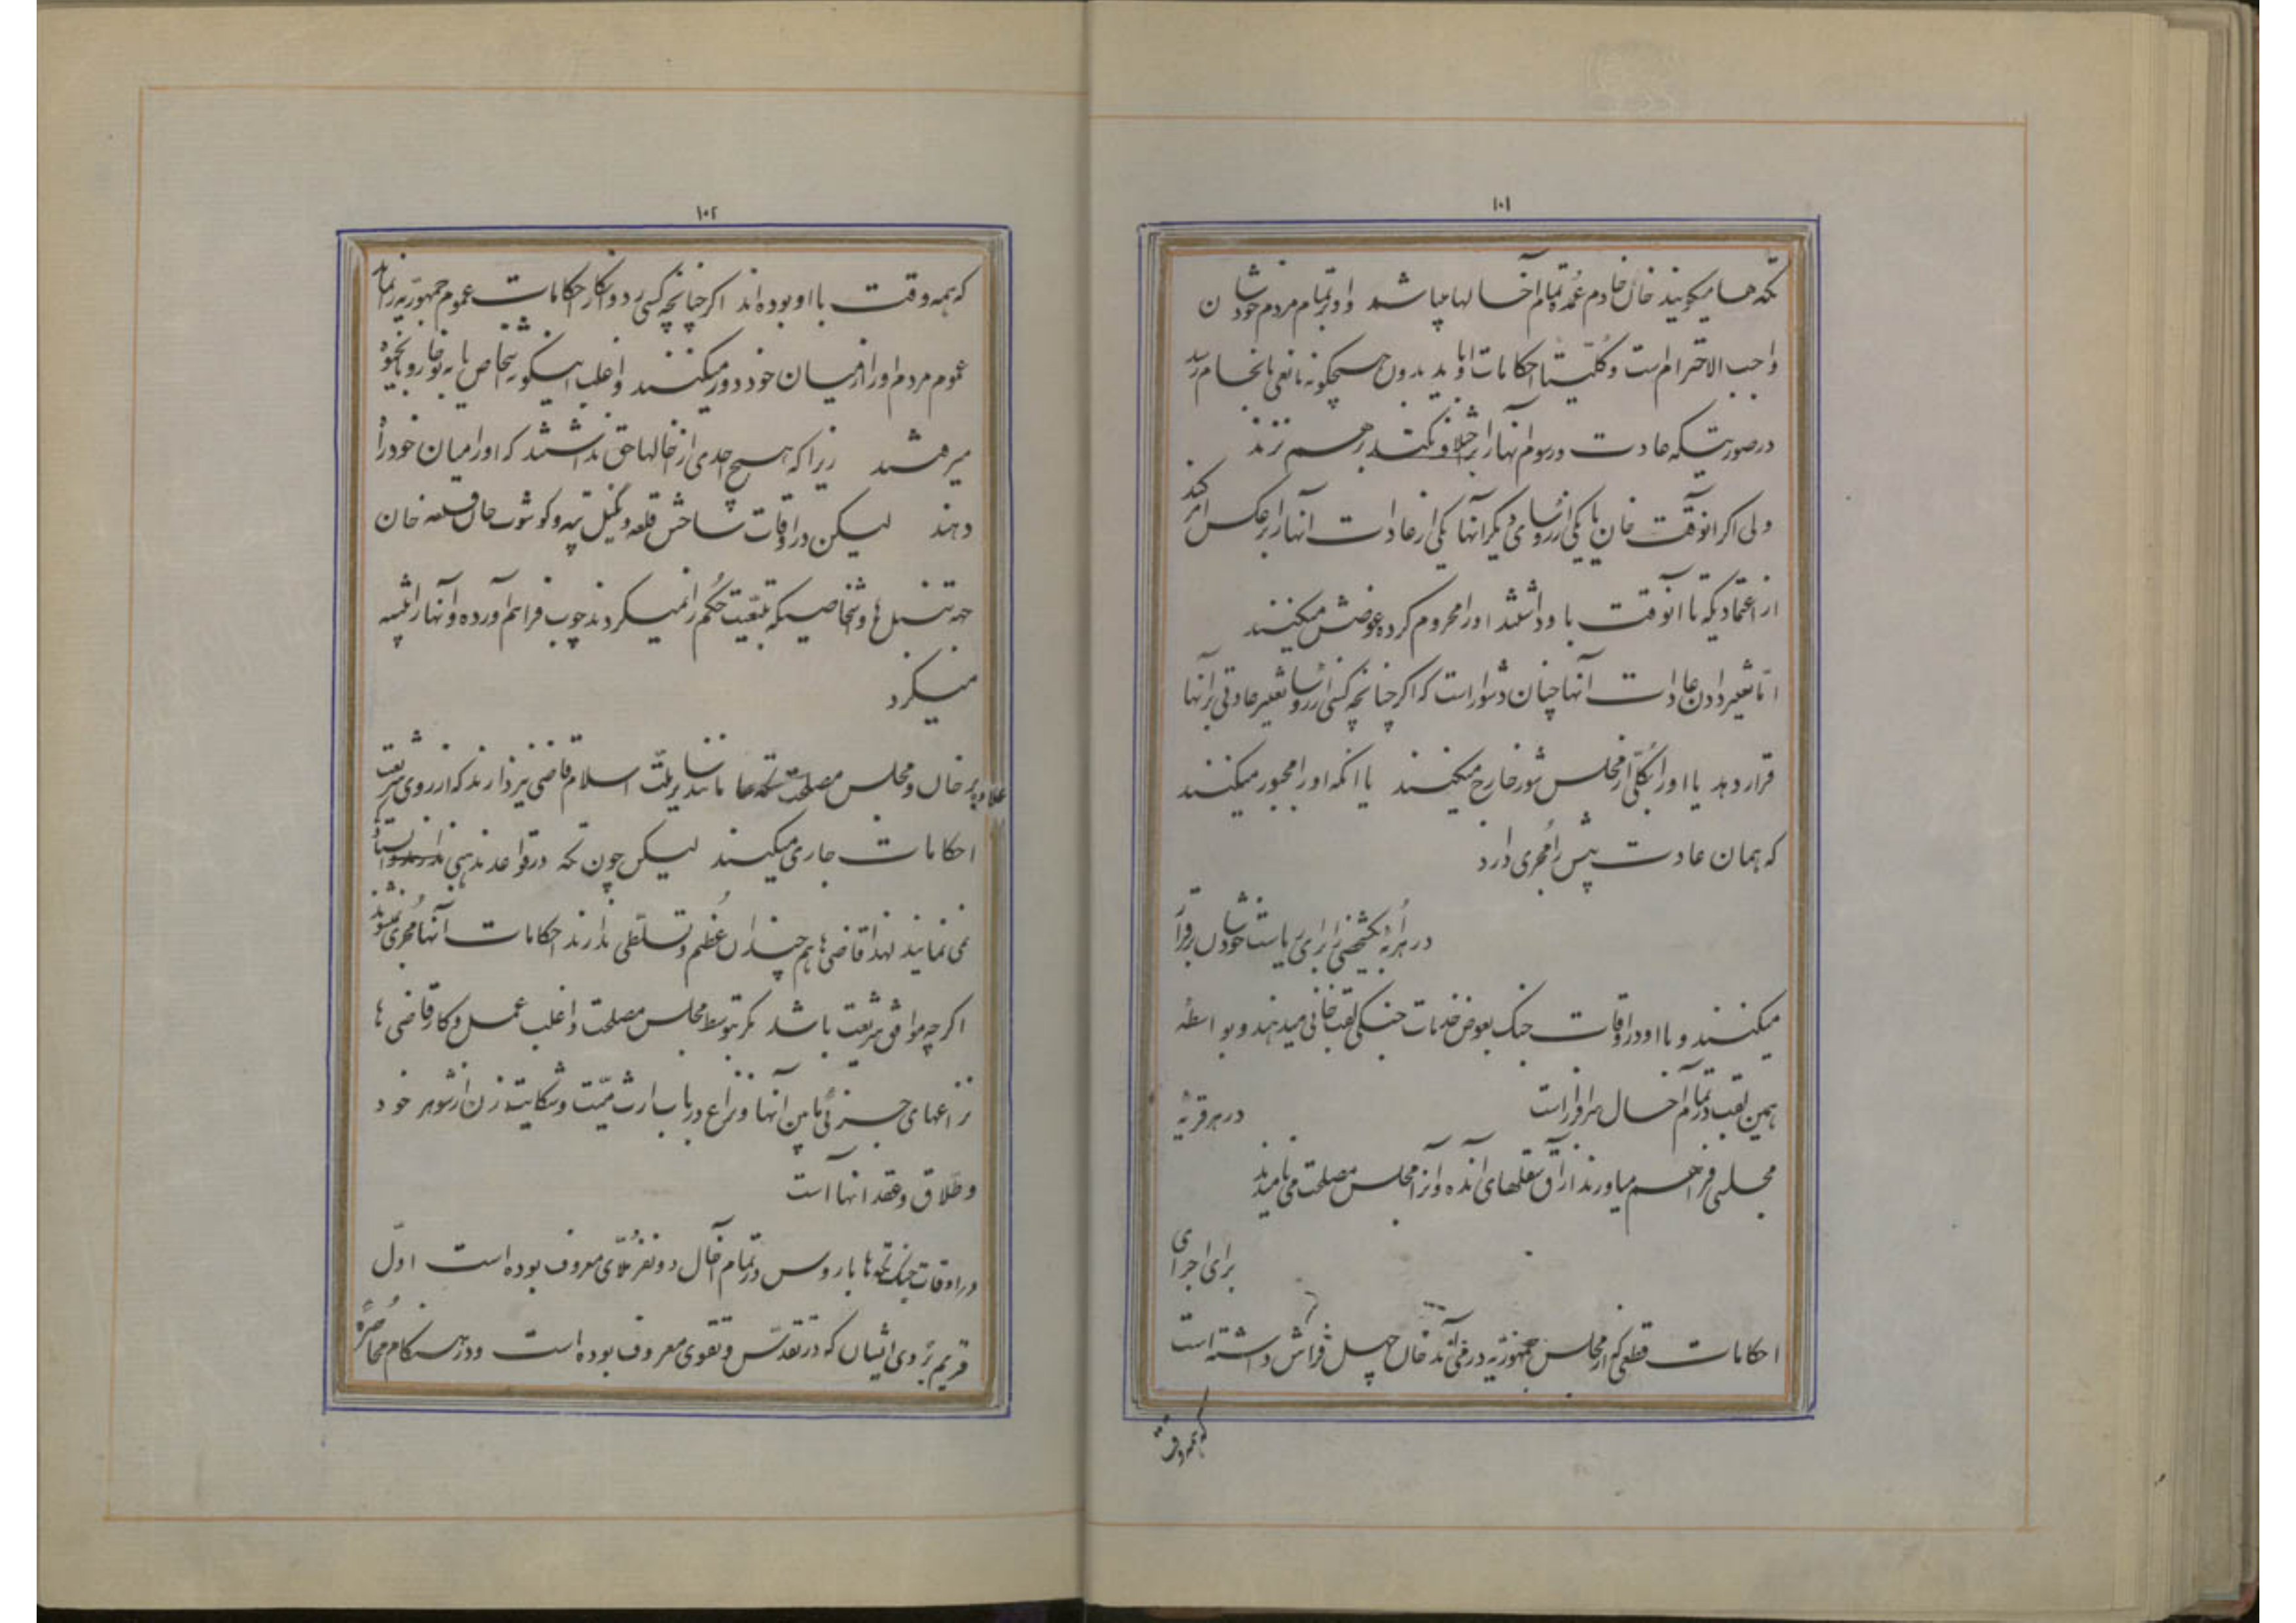 ۱۰۱
تکه ها میگویند خان خادم عمدهٔ تمام آخالها میباشد و او بر تمام مردم خودشان
واجب الاحترام است و کلیتا احکامات او باید بدون هیچگونه مانعی بانجام رسد
در صورتیکه عادت و رسوم آنها را بر خلاف نکند بر هم نزند
ولی اگر انوقت خان یا یکی از رؤسای دیگر آنها یکی از عادات آنها را بر عکس امر کند
از اعتمادیکه تا آنوقت باو داشتند او را محروم کرده عوضش میکنند
اما تغییر دادن عادات آنها چنان دشوار است که اگر چنانچه کسی از رؤسا تغییر عادتی بر آنها
قرار دهد یا او را بکلی از مجلس شور خارج میکنند یا انکه او را مجبور میکنند
که همان عادت پیش را مجری دارد
در هر یکشخصی را برای ریاست خودشان برقرار
میکنند و با او در اوقات جنگ بعوض خدمات جنگی لقب خانی میدهند و بواسطه
همین لقب در تمام آخال سرافراز است در هر قریه
مجلسی فراهم میاورند از آق سقلهای و آنرا مجلس مصلحت می نامیدند
برای اجرای
احکامات قطعی که از مجلس جمهوریه در خان چهل فراش داشته است
که همه وقت
۱۰۲
که همه وقت با او بوده اند اگر چنانچه کسی رد و انکار احکامات عموم جمهوریه را نماید
عموم مردم او را از میان خود دور میکنند و اغلب اینگونه اشخاص یا به بخارا و یا بخیوه
میرفتند زیرا که هیچ احدی از آخالها حق نداشتند که او را میان خود راه
دهند لیکن در اوقات ساختن قلعه و گیل تپه و کوشوت خان قلعه خان
جهة تنبل ها و اشخاصیکه تبعیت حکم را نمیکردند چوب فراهم آورده و آنها را تنبیه
میکرد
علاوه بر خان و مجلس مصلحت تکه ها مانند سایر ملت اسلام قاضی نیز دارند که از روی شریعت
احکامات جاری میکنند لیکن چون تکه در قواعد مذهبی
نمی نمایند لهذا قاضی ها هم چندان عظم و تسلطی ندارند احکامات آنها مجری نمیشوند
اگر چه موافق شریعت باشد مگر بتوسط مجلس مصلحت و اغلب عمل و کار قاضی ها
نزاعهای جزئی مابین آنها و نزاع در باب ارث میت و شکایت زن از شوهر خود
و طلاق و عقد آنها است
در اوقات جنگ تکه ها با روس در تمام آخال دو نفر ملای معروف بوده است اول
ایشان که در تقدس و تقوی معروف بوده است و در هنگام محاصره